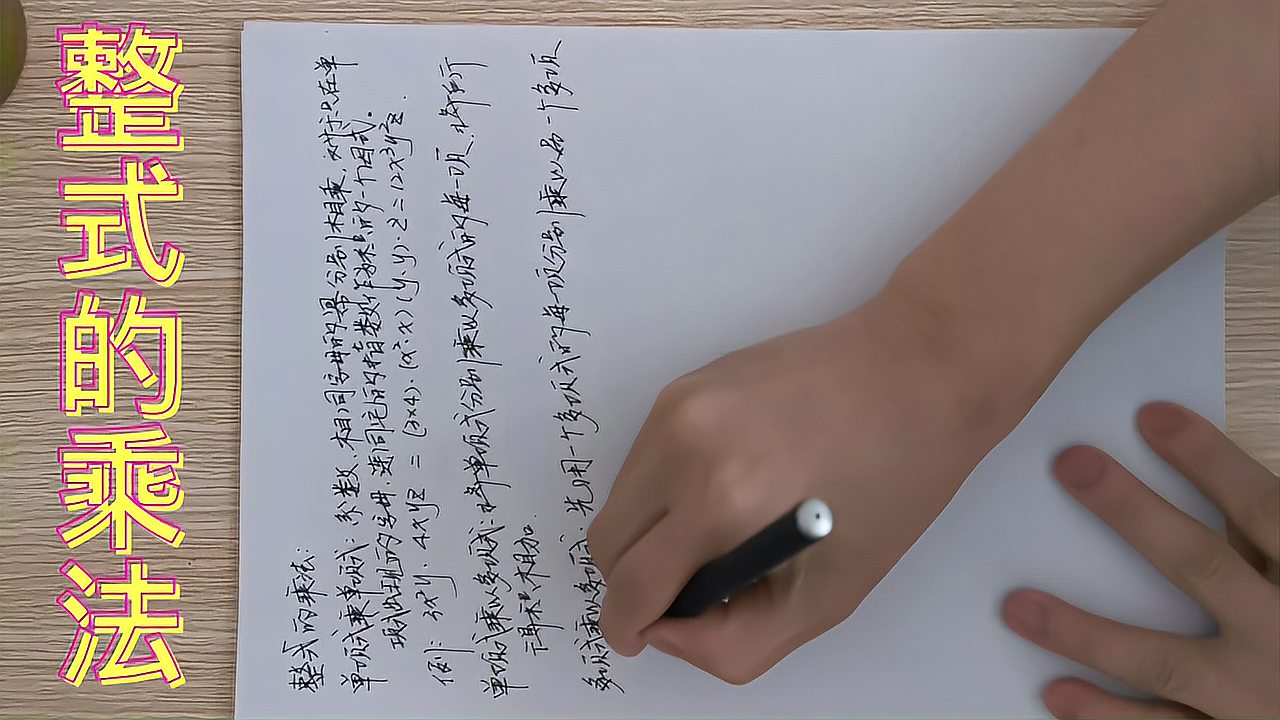 整式的乘法
整式的乘法:
单项式乘单项式: 系数、相同字母的幂分别相乘.对于只在单
项式出现的字母,连同它的指数作为积的一个因式.
例: 3x²y · 4xyz = (3×4)·(x²·x)(y·y)·z = 12x³y²z.
单项式乘以多项式:将单项式分别乘以多项式的每一项,将所
得积相加.
多项式乘以多项式: 先用一个多项式的每一项分别乘以另一个多项